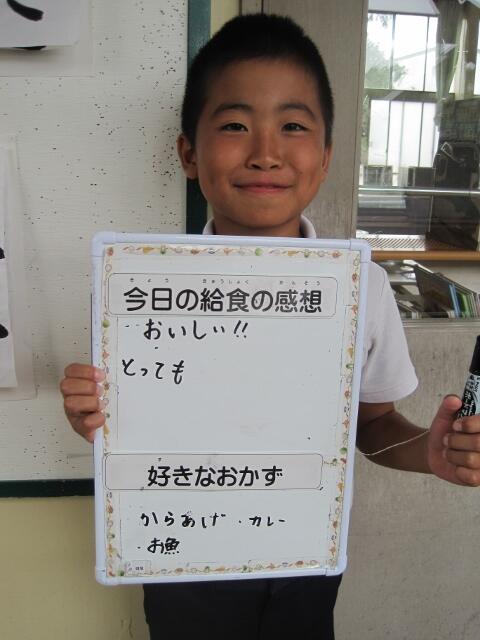 きょう きゅうしょく かんそう
今日の給食の感想
おいしい!!
とっても
好きなおかず
からあげ ・カレー
・お魚